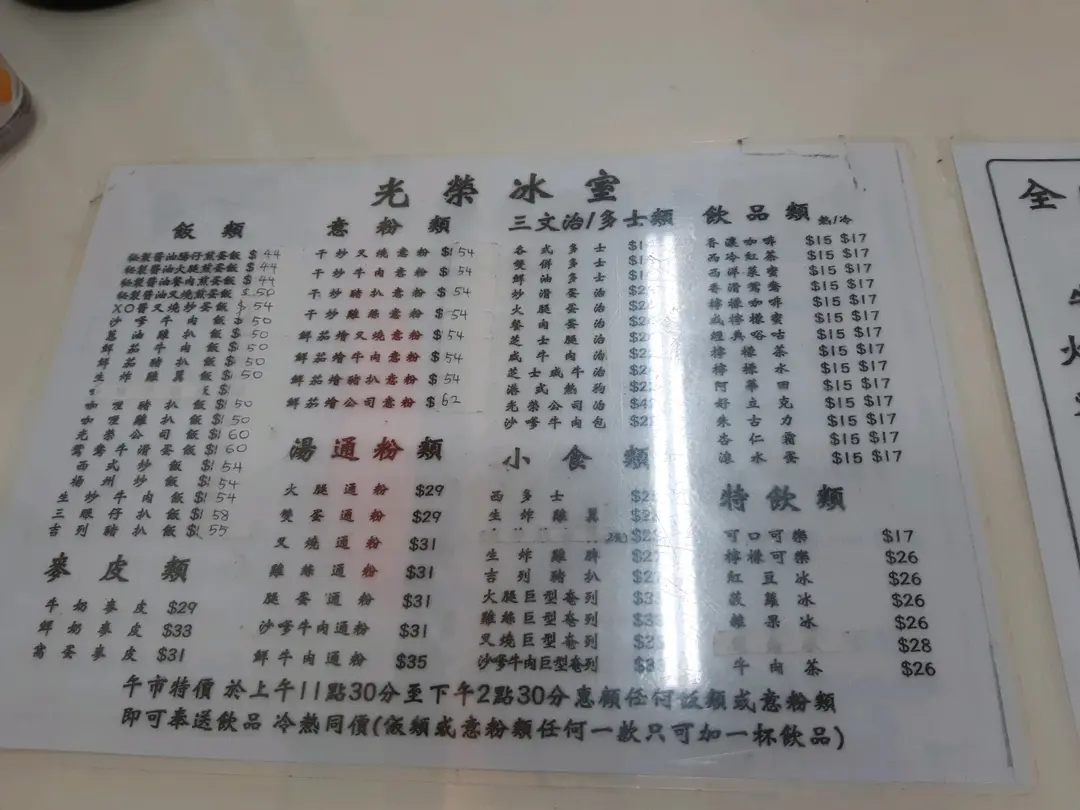 光榮冰室
飯類
秘製醬油腸仔煎蛋飯 $44
秘製醬油火腿煎蛋飯 $44
秘製醬油餐肉煎蛋飯 $44
秘製醬油叉燒煎蛋飯 $50
XO醬叉燒炒蛋飯 $54
沙爹牛肉飯 $50
蔥油雞扒飯 $50
鮮茄牛肉飯 $50
鮮茄豬扒飯 $50
生炸雞翼飯 $50
咖哩豬扒飯 $50
咖哩雞扒飯 $50
光榮公司飯 $60
鴛鴦牛滑蛋飯 $60
西式炒飯 $54
揚州炒飯 $54
生炒牛肉飯 $54
三眼仔扒飯 $58
吉列豬扒飯 $55
麥皮類
牛奶麥皮 $29
鮮奶麥皮 $33
窩蛋麥皮 $31
意粉類
干炒叉燒意粉 $54
干炒牛肉意粉 $54
干炒豬扒意粉 $54
干炒雞絲意粉 $54
鮮茄燴叉燒意粉 $54
鮮茄燴牛肉意粉 $54
鮮茄燴豬扒意粉 $54
鮮茄燴公司意粉 $62
湯通粉類
火腿通粉 $29
雙蛋通粉 $29
叉燒通粉 $31
雞絲通粉 $31
腿蛋通粉 $31
沙爹牛肉通粉 $31
鮮牛肉通粉 $35
三文治/多士類
各式多士
雙併多士
鮮油多士
炒滑蛋治
火腿蛋治
餐肉蛋治
芝士腿治
咸牛肉治
芝士咸牛治
港式熱狗
光榮公司治
沙爹牛肉包
小食類
西多士
生炸雞翼
生炸雞髀
吉列豬扒
火腿巨型奄列
雞絲巨型奄列
叉燒巨型奄列
沙爹牛肉巨型奄列
飲品類 熱/冷
香濃咖啡 $15 $17
西冷紅茶 $15 $17
西洋菜蜜 $15 $17
香滑鴛鴦 $15 $17
檸檬咖啡 $15 $17
咸檸檬蜜 $15 $17
經典唂咕 $15 $17
檸檬茶 $15 $17
檸檬水 $15 $17
阿華田 $15 $17
好立克 $15 $17
朱古力 $15 $17
杏仁霜 $15 $17
滾水蛋 $15 $17
特飲類
可口可樂 $17
檸檬可樂 $26
紅豆冰 $26
菠蘿冰 $26
雜果冰 $26
$28
牛肉茶 $26
午市特價 於上午11點30分至下午2點30分惠顧任何飯類或意粉類
即可奉送飲品 冷熱同價(飯類或意粉類任何一款只可加一杯飲品)
全